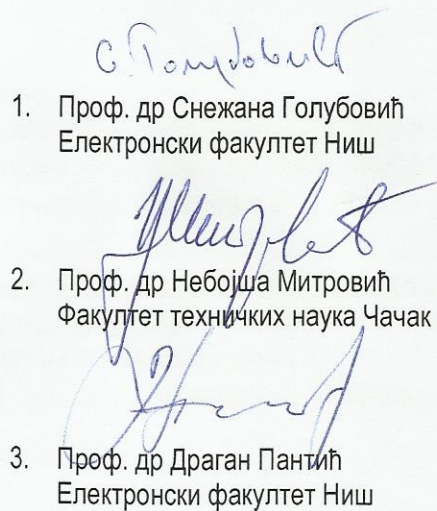 С. Голубовић
1. Проф. др Снежана Голубовић
Електронски факултет Ниш
2. Проф. др Небојша Митровић
Факултет техничких наука Чачак
3. Проф. др Драган Пантић
Електронски факултет Ниш